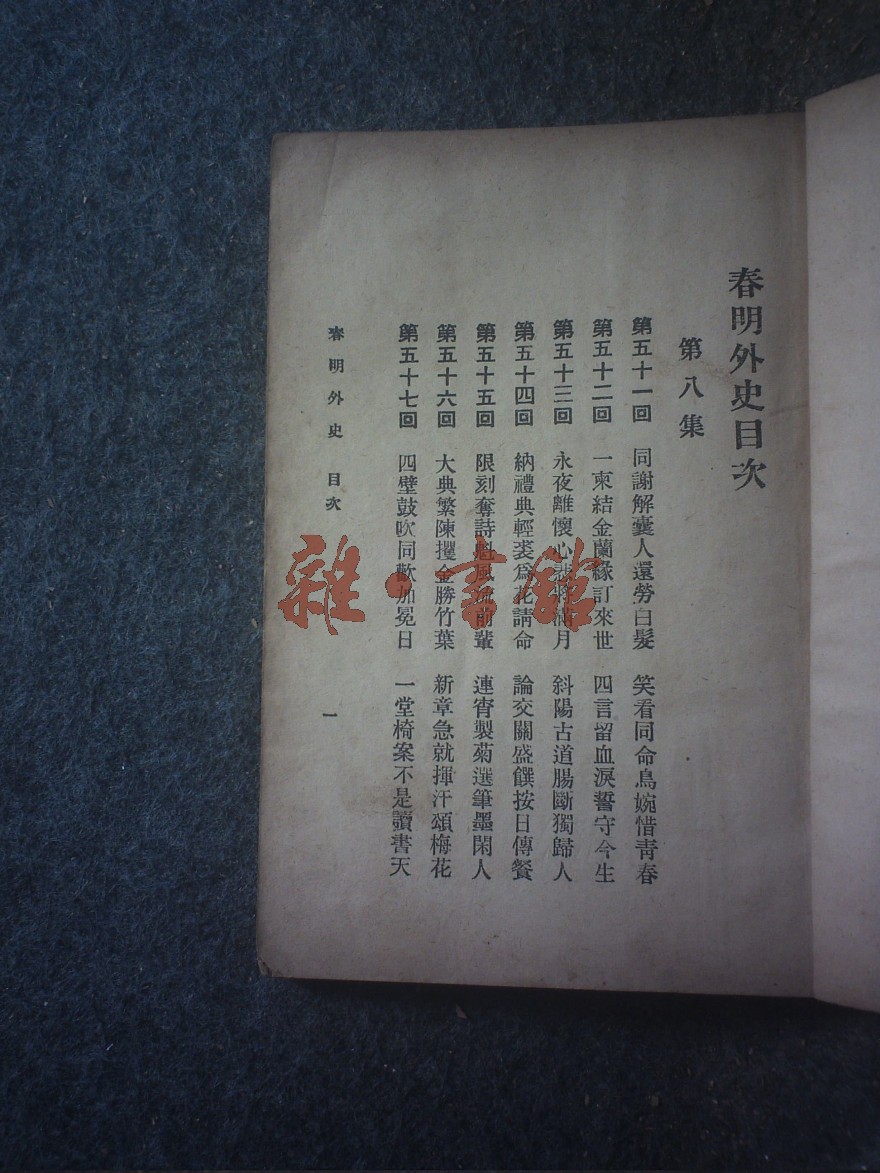 春明外史目次
第八集
第五十一回 同謝解囊人還勞白髮 笑看同命鳥婉惜青春
第五十二回 一柬結金蘭緣訂來世 四言留血淚誓守今生
第五十三回 永夜離懷心 將滿月 斜陽古道腸斷獨歸人
第五十四回 納禮典輕裘爲花請命 論交關盛饌按日傳餐
第五十五回 限刻奪詩魁風流前輩 連宵製菊選筆墨閑人
第五十六回 大典繁陳攫金勝竹葉 新章急就揮汗頌梅花
第五十七回 四壁鼓吹同歡加冕日 一堂椅案不是讀書天
春明外史 目次 一
雜·書館